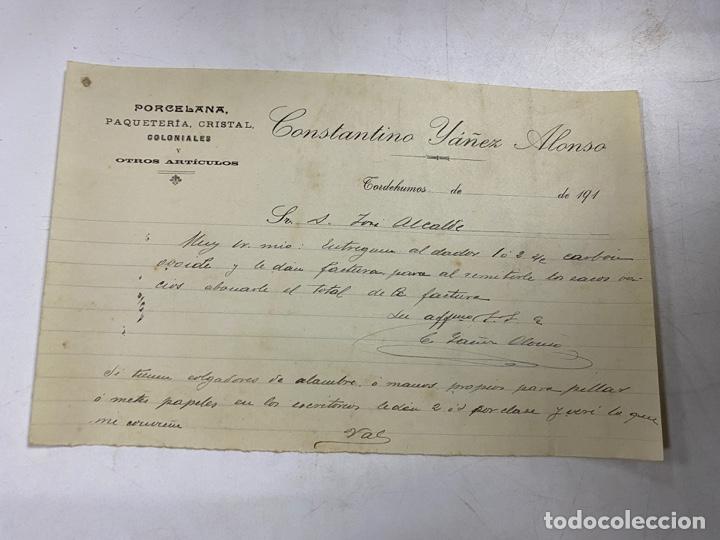 PORCELANA,
PAQUETERÍA, CRISTAL,
COLONIALES
Y
OTROS ARTÍCULOS
Constantino Yáñez Alonso
Tordehumos de de 191
Sr. D. José Alcalde
Muy sr. mio: Entreguen al dador 1 ó 2 qq carbón
ovoide y le dan factura para al remitirle los sacos va-
cios abonarle el total de la factura
Su affmo S. S.
C. Yáñez Alonso
Si tienen colgadores de alambre ó manos propios para pillar
ó meter papeles en los escritorios le dan 2 ó 3 por clase y veré lo que
me conviene
Vale
todocoleccion.net